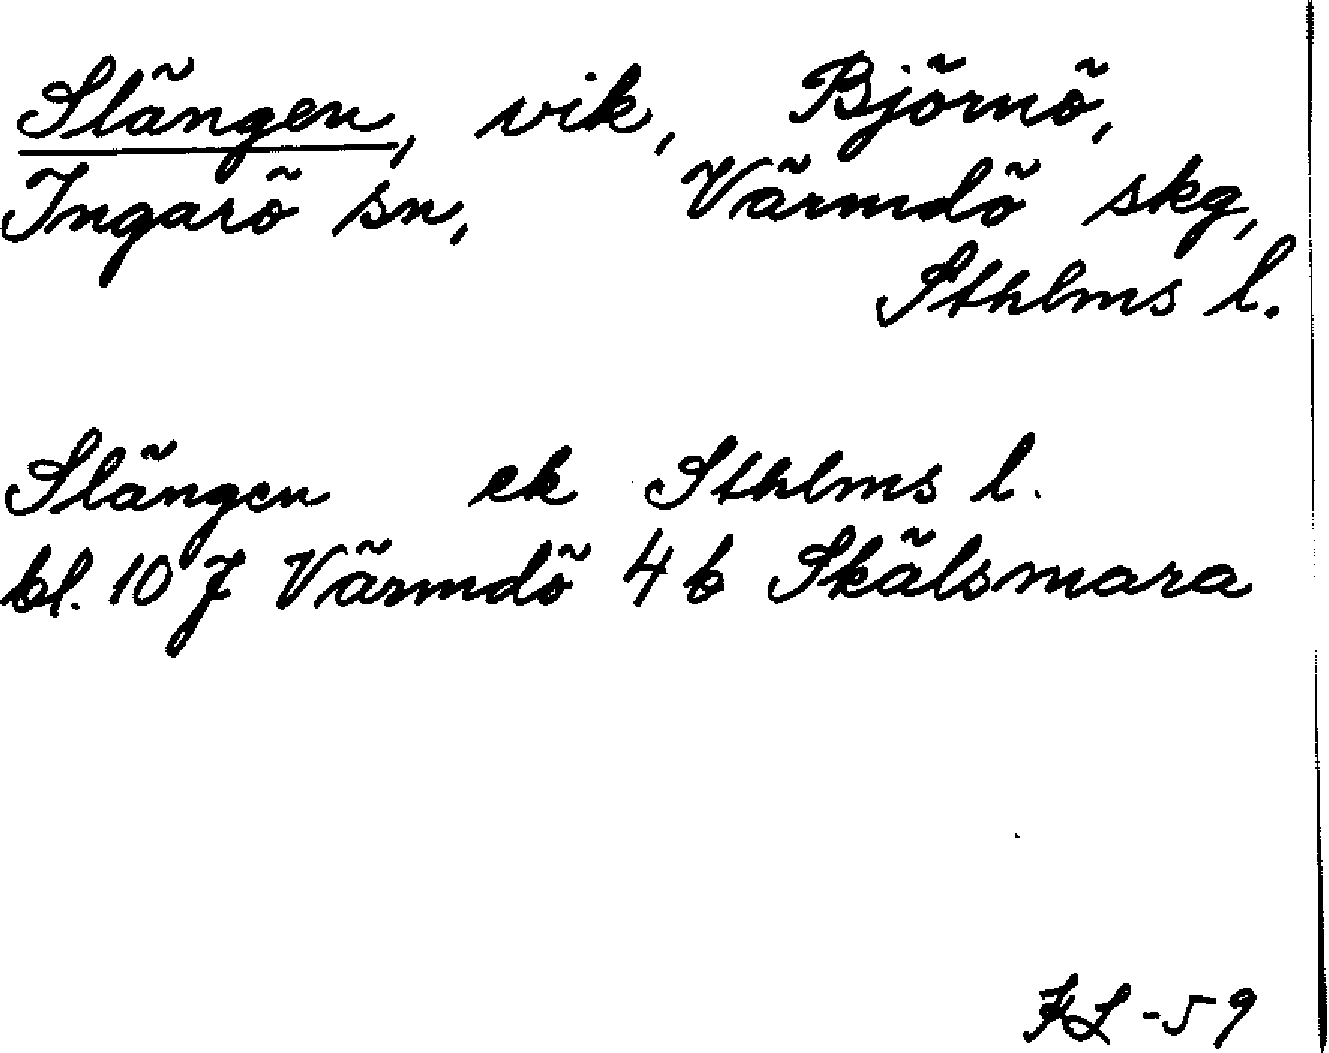 Slängen, vik, Björnö,
Ingarö sn, Värmdö skg,
Sthlms l.
Slängen ek Sthlms l.
bl. 107 Värmdö 4b Skälsmara
KL-59